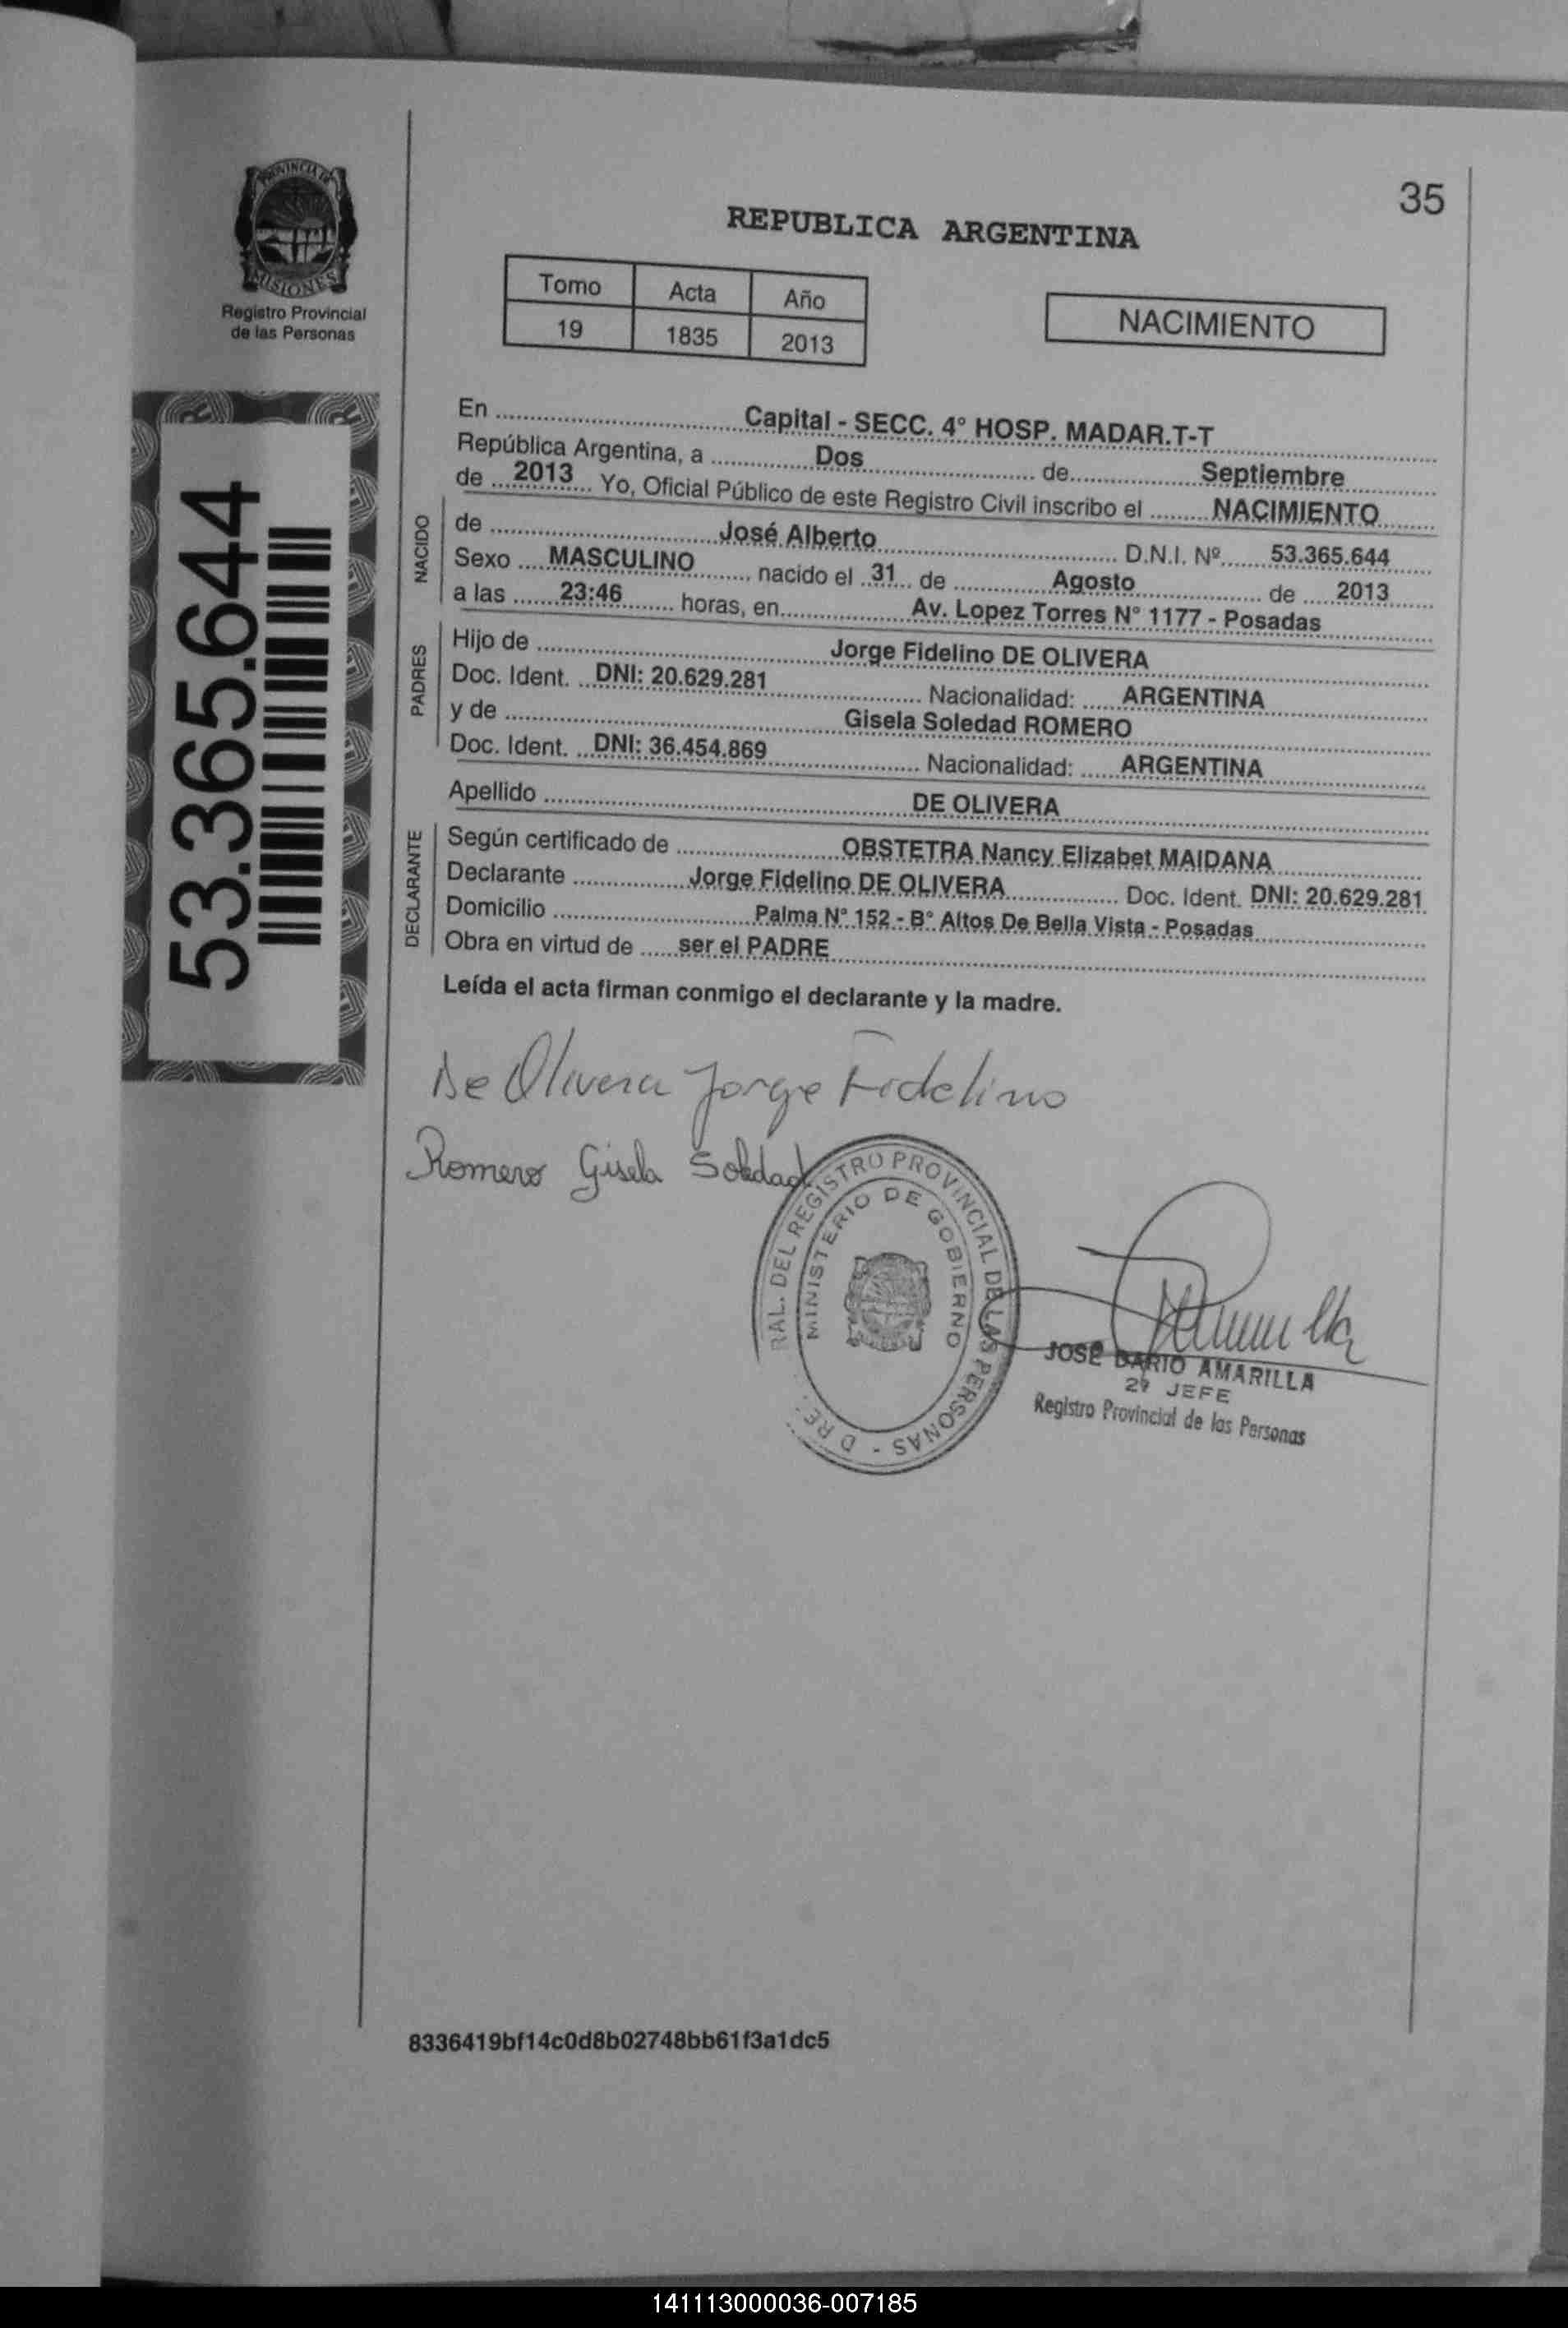 35
PROVINCIA DE
MISIONES
Registro Provincial
de las Personas
53.365.644
REPUBLICA ARGENTINA
Tomo Acta Año
19 1835 2013
NACIMIENTO
En Capital - SECC. 4° HOSP. MADAR.T-T
República Argentina, a Dos de Septiembre
de 2013 Yo, Oficial Público de este Registro Civil inscribo el NACIMIENTO
NACIDO
de José Alberto D.N.I. Nº 53.365.644
Sexo MASCULINO nacido el 31 de Agosto de 2013
a las 23:46 horas, en Av. Lopez Torres N° 1177 - Posadas
PADRES
Hijo de Jorge Fidelino DE OLIVERA
Doc. Ident. DNI: 20.629.281 Nacionalidad: ARGENTINA
y de Gisela Soledad ROMERO
Doc. Ident. DNI: 36.454.869 Nacionalidad: ARGENTINA
Apellido DE OLIVERA
DECLARANTE
Según certificado de OBSTETRA Nancy Elizabet MAIDANA
Declarante Jorge Fidelino DE OLIVERA Doc. Ident. DNI: 20.629.281
Domicilio Palma N° 152 - B° Altos De Bella Vista - Posadas
Obra en virtud de ser el PADRE
Leída el acta firman conmigo el declarante y la madre.
De Olivera Jorge Fidelino
Romero Gisela Soledad
RAL. DEL REGISTRO PROVINCIAL DE LAS PERSONAS - D RE
MINISTERIO DE GOBIERNO
JOSE DARIO AMARILLA
2º JEFE
Registro Provincial de las Personas
8336419bf14c0d8b02748bb61f3a1dc5
141113000036-007185